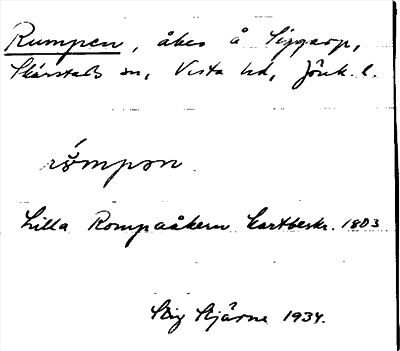 Rumpen, åker å Siggarp,
Skärstads sn, Vista hd, Jönk. l.
römpən
Lilla Rompaåkern Kartbeskr. 1803
Stig Stjärne 1934.